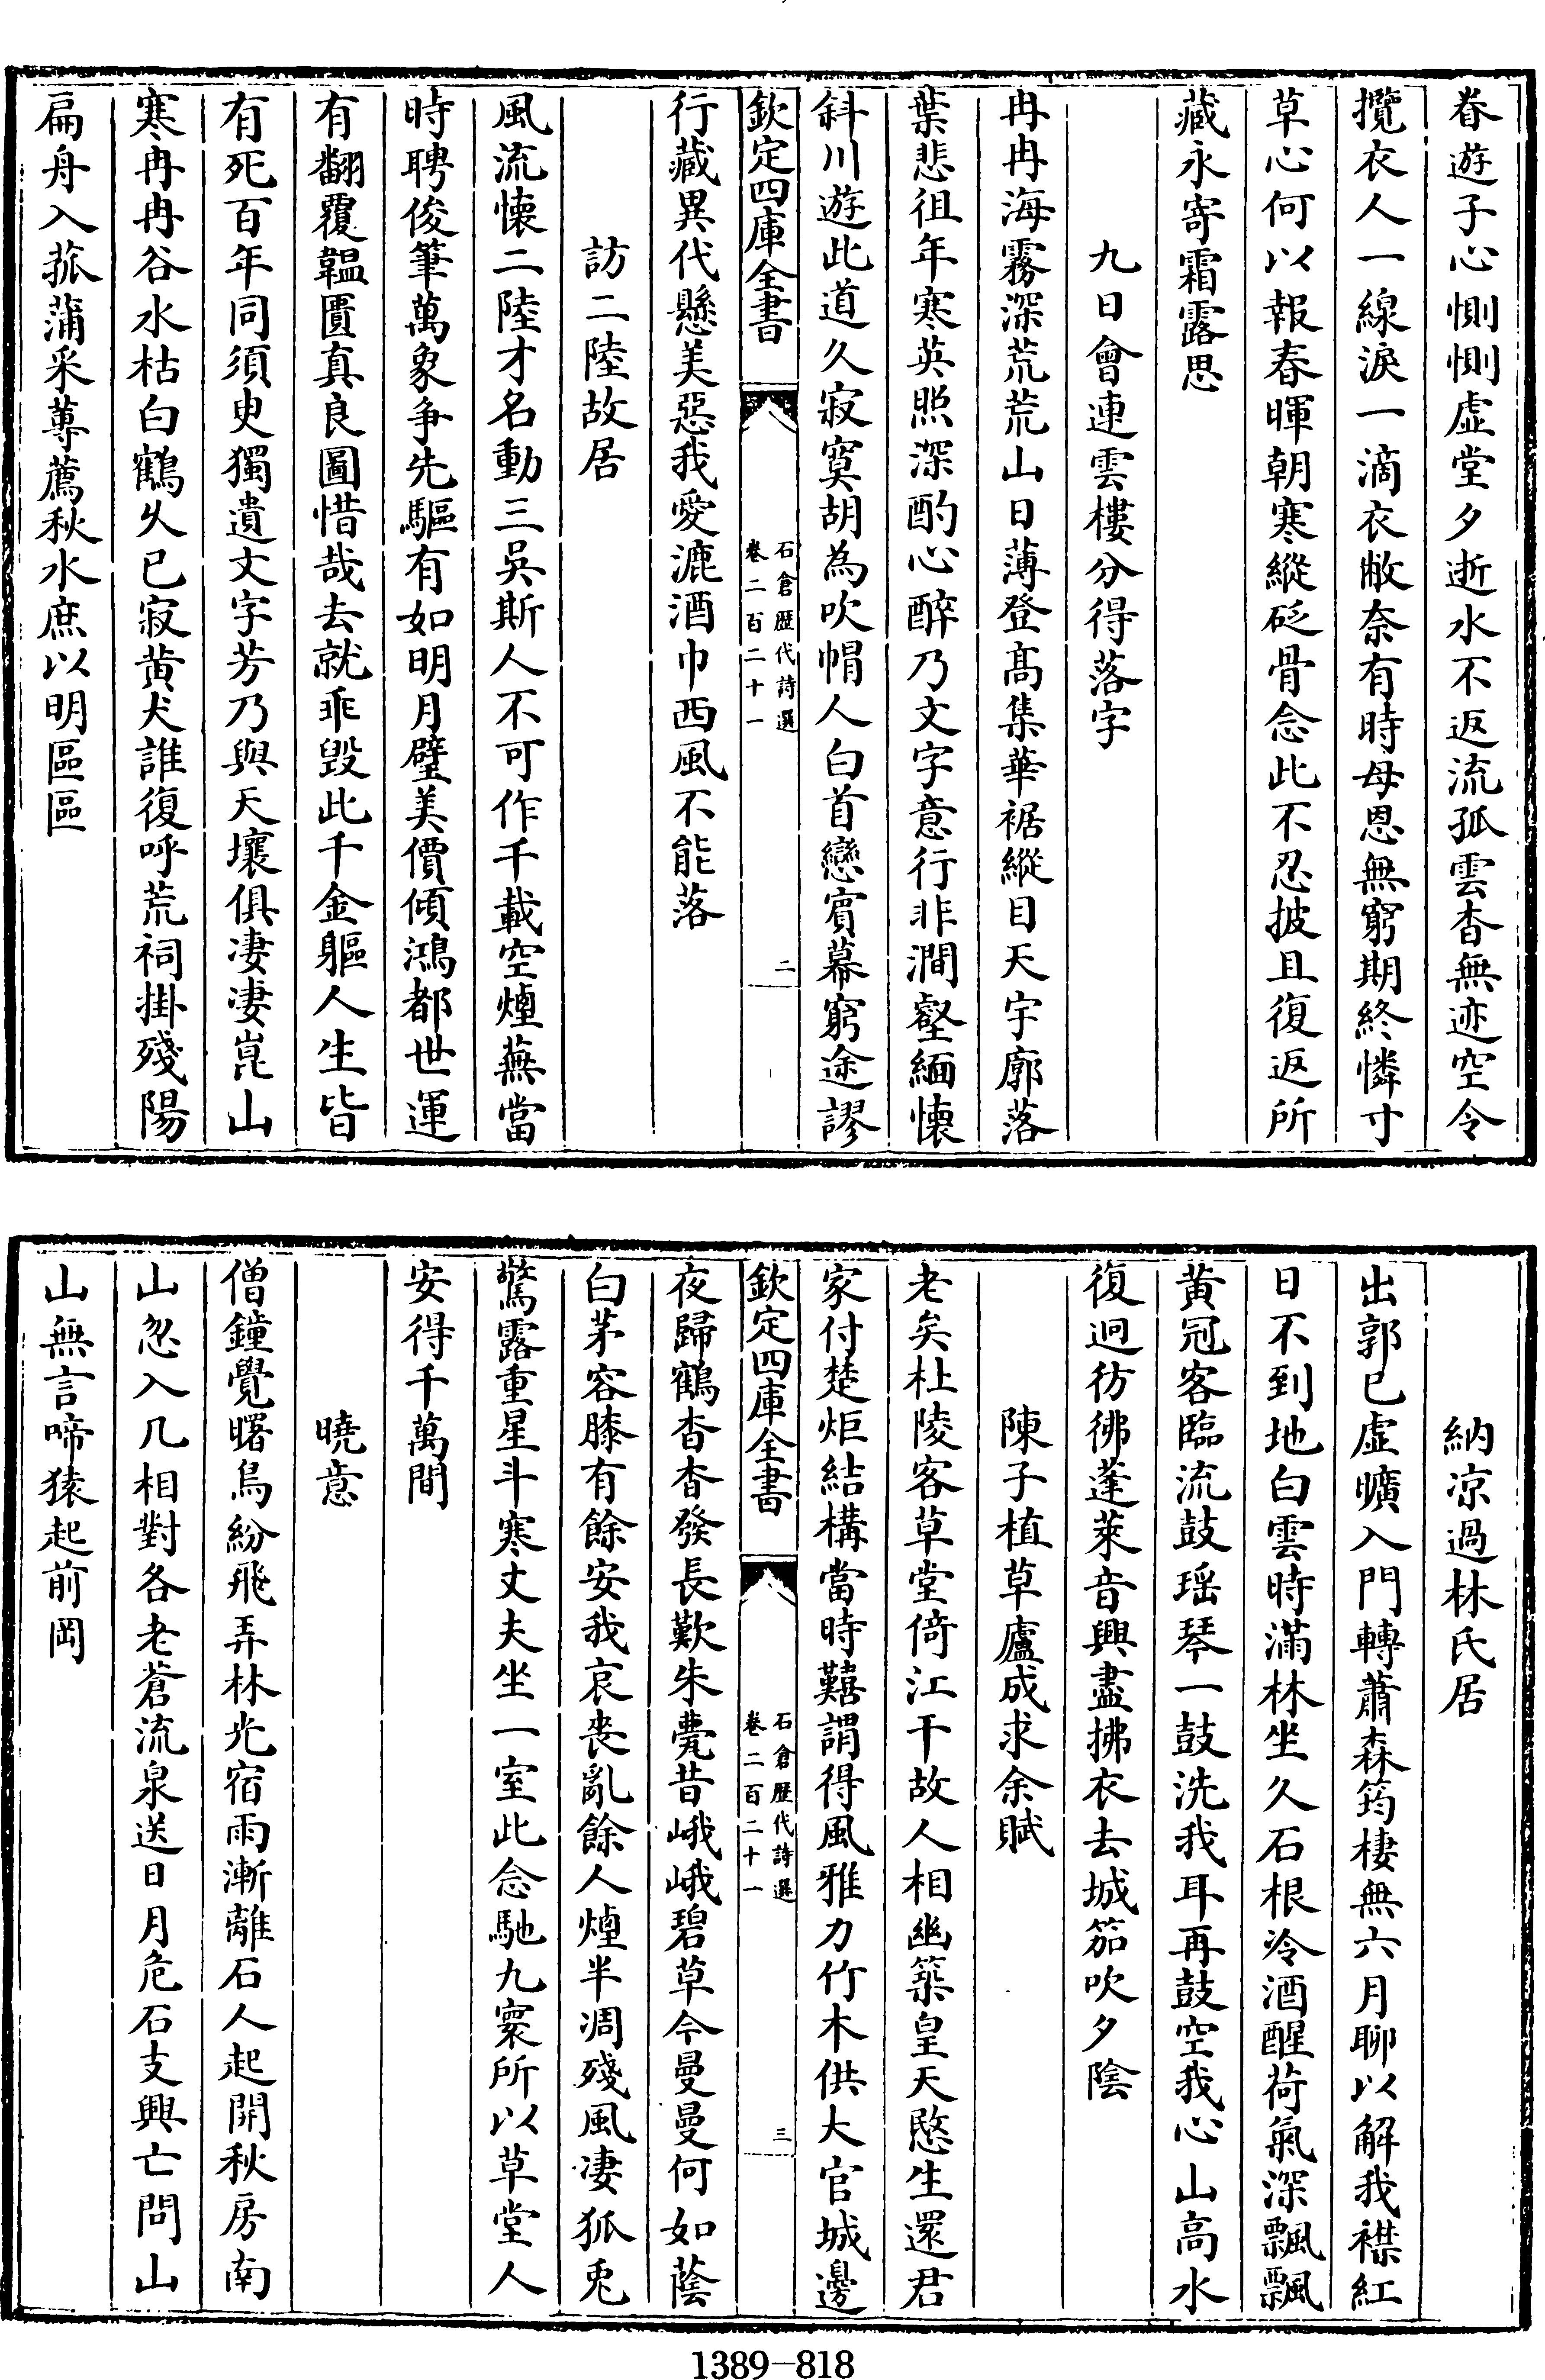 眷遊子心惻惻虚堂夕逝水不返流孤雲杳無迹空令
攬衣人一線淚一滴衣敝奈有時母恩無窮期終憐寸
草心何以報春暉朝寒縱砭骨念此不忍披且復返所
藏永寄霜露思
九日會連雲樓分得落字
冉冉海霧深荒荒山日薄登髙集華裾縱目天宇廓落
葉悲徂年寒英照深酌心醉乃文字意行非澗壑緬懐
斜川遊此道久寂寞胡為吹帽人白首戀賓幕窮途謬
欽定四庫全書
石倉歴代詩選
卷二百二十一
二
行藏異代懸美惡我愛漉酒巾西風不能落
訪二陸故居
風流懐二陸才名動三吳斯人不可作千載空煙蕪當
時聘俊筆萬象争先驅有如明月璧美價傾鴻都世運
有翻覆韞匵真良圖惜哉去就乖毀此千金軀人生皆
有死百年同須臾獨遺文字芳乃與天壤俱凄凄崑山
寒冉冉谷水枯白鶴久已寂黄犬誰復呼荒祠掛殘陽
扁舟入菰蒲采蓴薦秋水庶以明區區
納凉過林氏居
出郭已虚曠入門轉蕭森筠棲無六月聊以解我襟紅
日不到地白雲時滿林坐久石根冷酒醒荷氣深飄飄
黄冠客臨流鼓瑶琴一鼓洗我耳再鼓空我心山高水
復迥彷彿蓬萊音興盡拂衣去城笳吹夕陰
陳子植草廬成求余賦
老矣杜陵客草堂倚江干故人相幽築皇天愍生還君
家付楚炬結構當時囏謂得風雅力竹木供大官城邊
欽定四庫全書
石倉歴代詩選
卷二百二十一
三
夜歸鶴杳杳發長歎朱甍昔峨峨碧草今曼曼何如蔭
白茅容膝有餘安我哀喪亂餘人煙半凋殘風凄狐兎
驚露重星斗寒丈夫坐一室此念馳九寰所以草堂人
安得千萬間
曉意
僧鐘覺曙鳥紛飛弄林光宿雨漸離石人起開秋房南
山忽入几相對各老蒼流泉送日月危石支興亡問山
山無言啼猿起前岡
1389-818